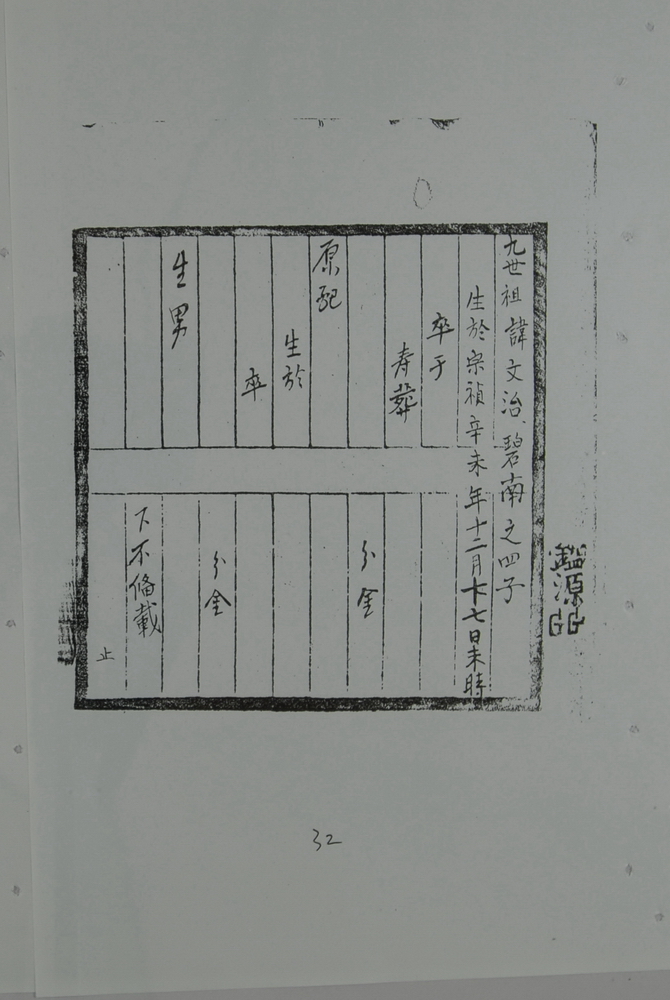 九世祖諱文治、碧南之四子
生於宗禎辛未年十二月十七日未時
卒于
寿葬
分金
原配
生於
卒
分金
生男
下不俻載
止
鑑源
32